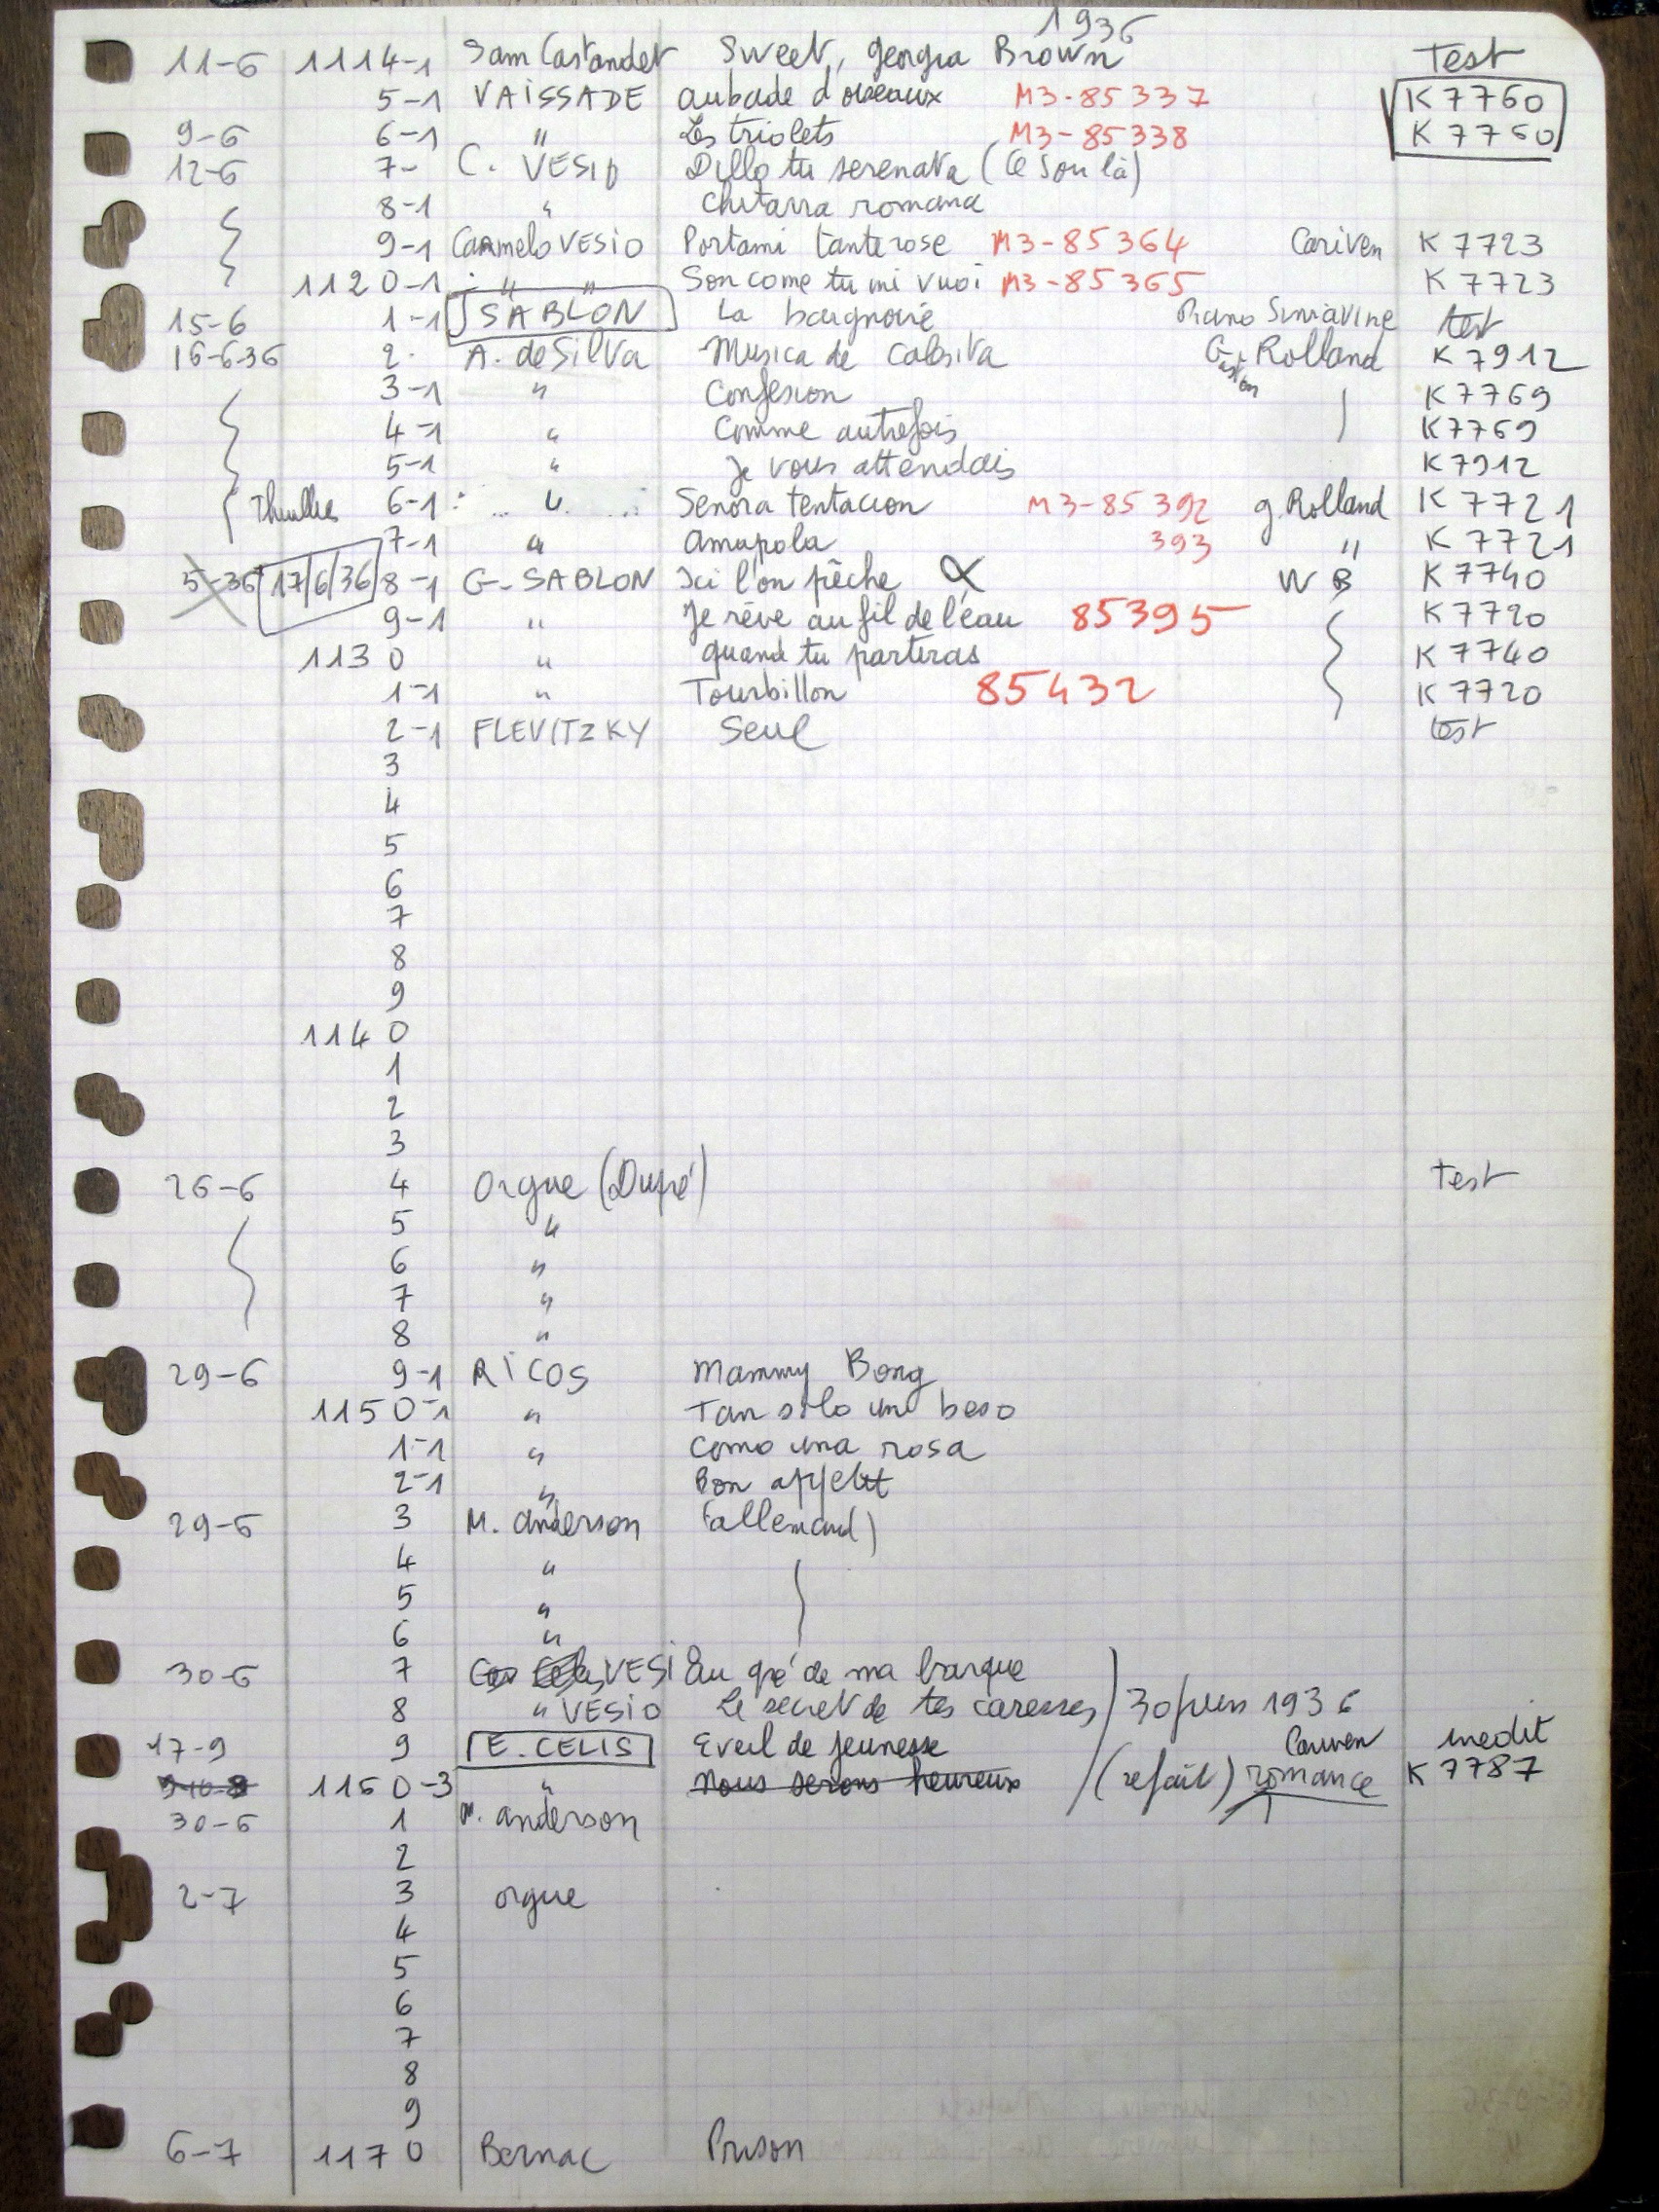 1936
11-6 1114-1 Sam Castandet Sweet, georgia Brown Test
5-1 VAISSADE aubade d'oiseaux M3-85337 K7760
9-6 6-1 " Les triolets M3-85338 K7760
12-6 7- C. VESIO Dillo tu serenata (Ce soir là)
8-1 " chitarra romana
9-1 Carmelo VESIO Portami tante rose M3-85364 Cariven K7723
1120-1 " " Son come tu mi vuoi M3-85365 K7723
15-6 1-1 J SABLON La Piano Siniavine test
16-6-36 2- A. de Silva Musica de Gaston Rolland K7912
3-1 " Confesion K7769
4-1 " Comme autrefois K7769
5-1 " Je vous attendais K7912
6-1 " Senora tentacion M3-85392 g. Rolland K7721
7-1 " amapola 393 " K7721
5-36 17/6/36 8-1 G-SABLON Ici l'on pêche W B K7740
9-1 " Je rêve au fil de l'eau 85395 K7720
1130 " quand tu partiras K7740
1-1 " Tourbillon 85432 K7720
2-1 FLEVITZKY Seul test
3
4
5
6
7
8
9
1140
1
2
3
26-6 4 Orgue (Dupré) Test
5 "
6 "
7 "
8 "
29-6 9-1 RICOS Mammy Bong
1150-1 " Tan solo un beso
1-1 " Como una rosa
2-1 " Bon appetit
29-6 3 M. anderson (allemand)
4 "
5 "
6 "
30-6 7 VESI Au gré de ma barque
8 " VESIO Le secret de tes caresses 30 juin 1936
17-9 9 E. CELIS Eveil de jeunesse Cariven inedit
1160-3 " Nous serons heureux (refait) romance K7787
30-6 1 M. anderson
2
2-7 3 orgue
4
5
6
7
8
9
6-7 1170 Bernac Prison